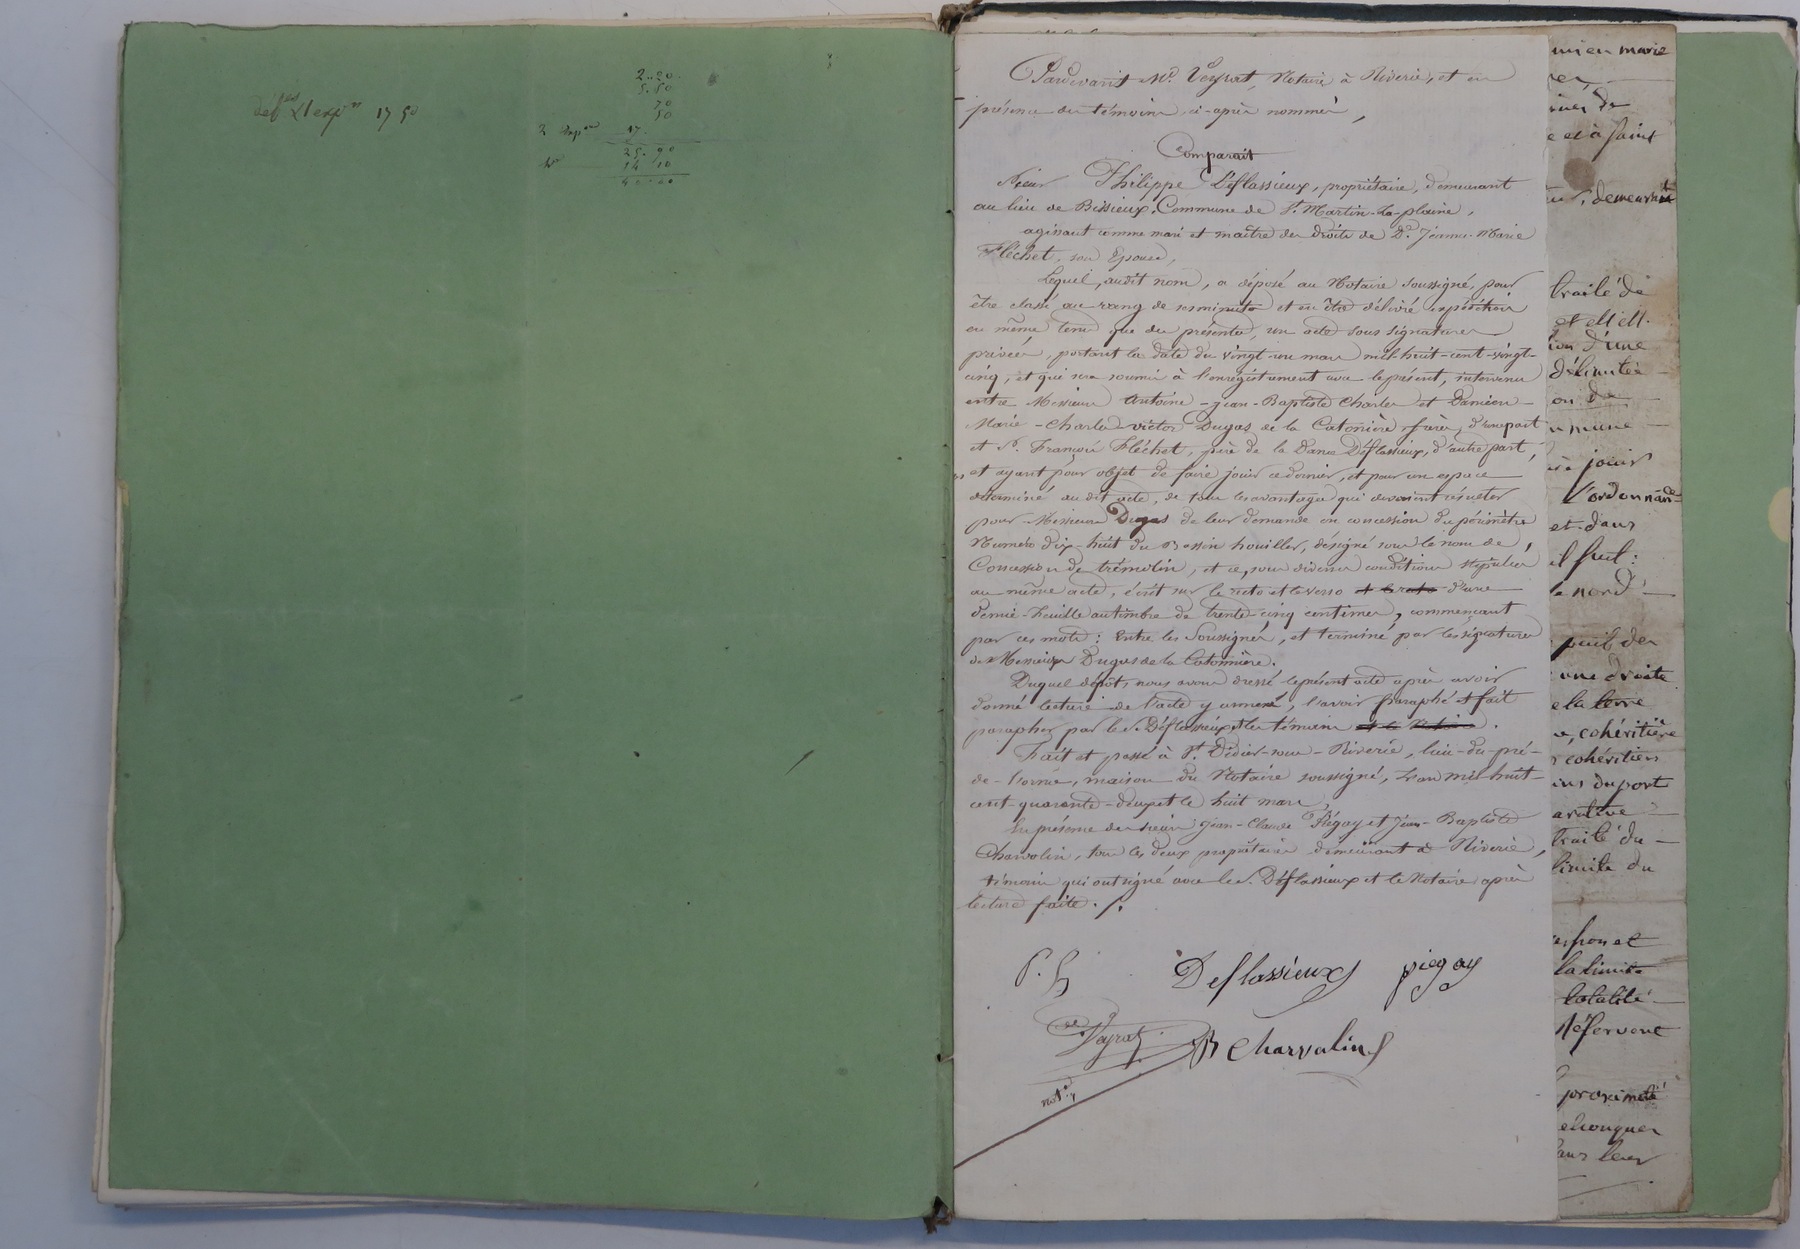 1 exp.on 17 50
2..20.
5.50
70
50
2 exp.on 17.
25.90
14 10
40..00
Pardevant Me. Veyrat, Notaire à Riverie, et en
présence des témoins ci-après nommés,
Comparait
Sieur Philippe Déflassieux, propriétaire, demeurant
au lieu de Bissieux, Commune de St. Martin-La-plaine,
agissant comme mari et maitre des droits de De. Jeanne-Marie
Fléchet, son Epouse,
Lequel, audit nom, a déposé au Notaire soussigné, pour
être classé au rang de ses minutes et en être délivré expédition
en même tems que des présentes, un acte sous signatures
privées, portant la date du vingt-un mars mil-huit-cent-vingt-
cinq, et qui sera soumis à l'enregistrement avec le présent, intervenu
entre Messieurs Antoine-Jean-Baptiste Charles et Damien-
Marie-Charles-victor Dugas de la Catonière frères, d'une part
et Sr. François Fléchet, père de la Dame Déflassieux, d'autre part,
et ayant pour objet de faire jouir ce dernier, et pour un espace
déterminé au dit acte, de tous les avantages qui devraient résulter
pour Messieurs Dugas de leur demande en concession du périmètre
Numéro dix-huit du Bassin houiller, désigné sous le nom de,
Concession de trémolin, et ce, sous diverses conditions stipulées
au même acte, écrit sur le recto et le verso d'une
demie-feuille au timbre de trente-cinq centimes, commençant
par ces mots: Entre les Soussignés, et terminé par les signatures
de Messieurs Dugas de la Catonnière.
Duquel dépôt, nous avons dressé le présent acte après avoir
donné lecture de l'acte y annexé, l'avoir paraphé et fait
parapher par le S. Déflassieux et les témoins et le Notaire.
Fait et passé à St. Didier-sous-Riverie, lieu-du-pré-
de-l'orme, maison du Notaire soussigné, L'an mil huit-
cent-quarante-deux et le huit mars,
En présence des sieurs Jean-Claude Piégay et Jean-Baptiste
Charvolin, tous les deux propriétaires demeurant à Riverie,
témoins qui ont signé avec le S. Déflassieux et le Notaire après
lecture faite./.
Deflassieux piegay
Veyrat B Charvalin
not.re
mien marie
e et à saint
demeurant
traité de
et ell ell.
ion d'une
délimitée
on de
mune
jouir
l'ordonnance
et dans
il suit:
le nord
puit de
une droite
e la terre
cohéritière
cohéritiers
ins du port
arative
traité du
limite du
la limite
totalité
réservent
proximité
échonquer
leur